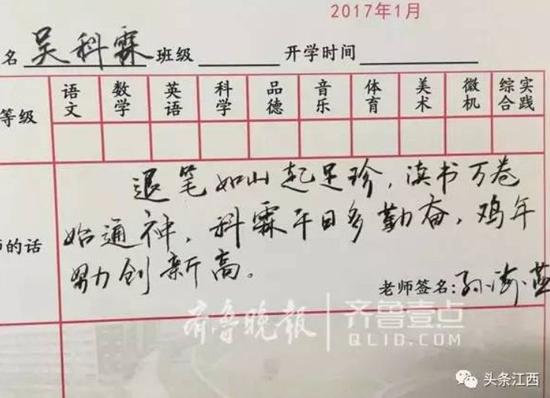 2017年1月
名 吴科霖 班级 开学时间
等级 语文 数学 英语 科学 品德 音乐 体育 美术 微机 综合实践
退笔如山起足珍,读书万卷
始通神,科霖平日多勤奋,鸡年
的话
努力创新高。
老师签名:孙海燕
齐鲁晚报 齐鲁壹点
QLID.COM
头条江西